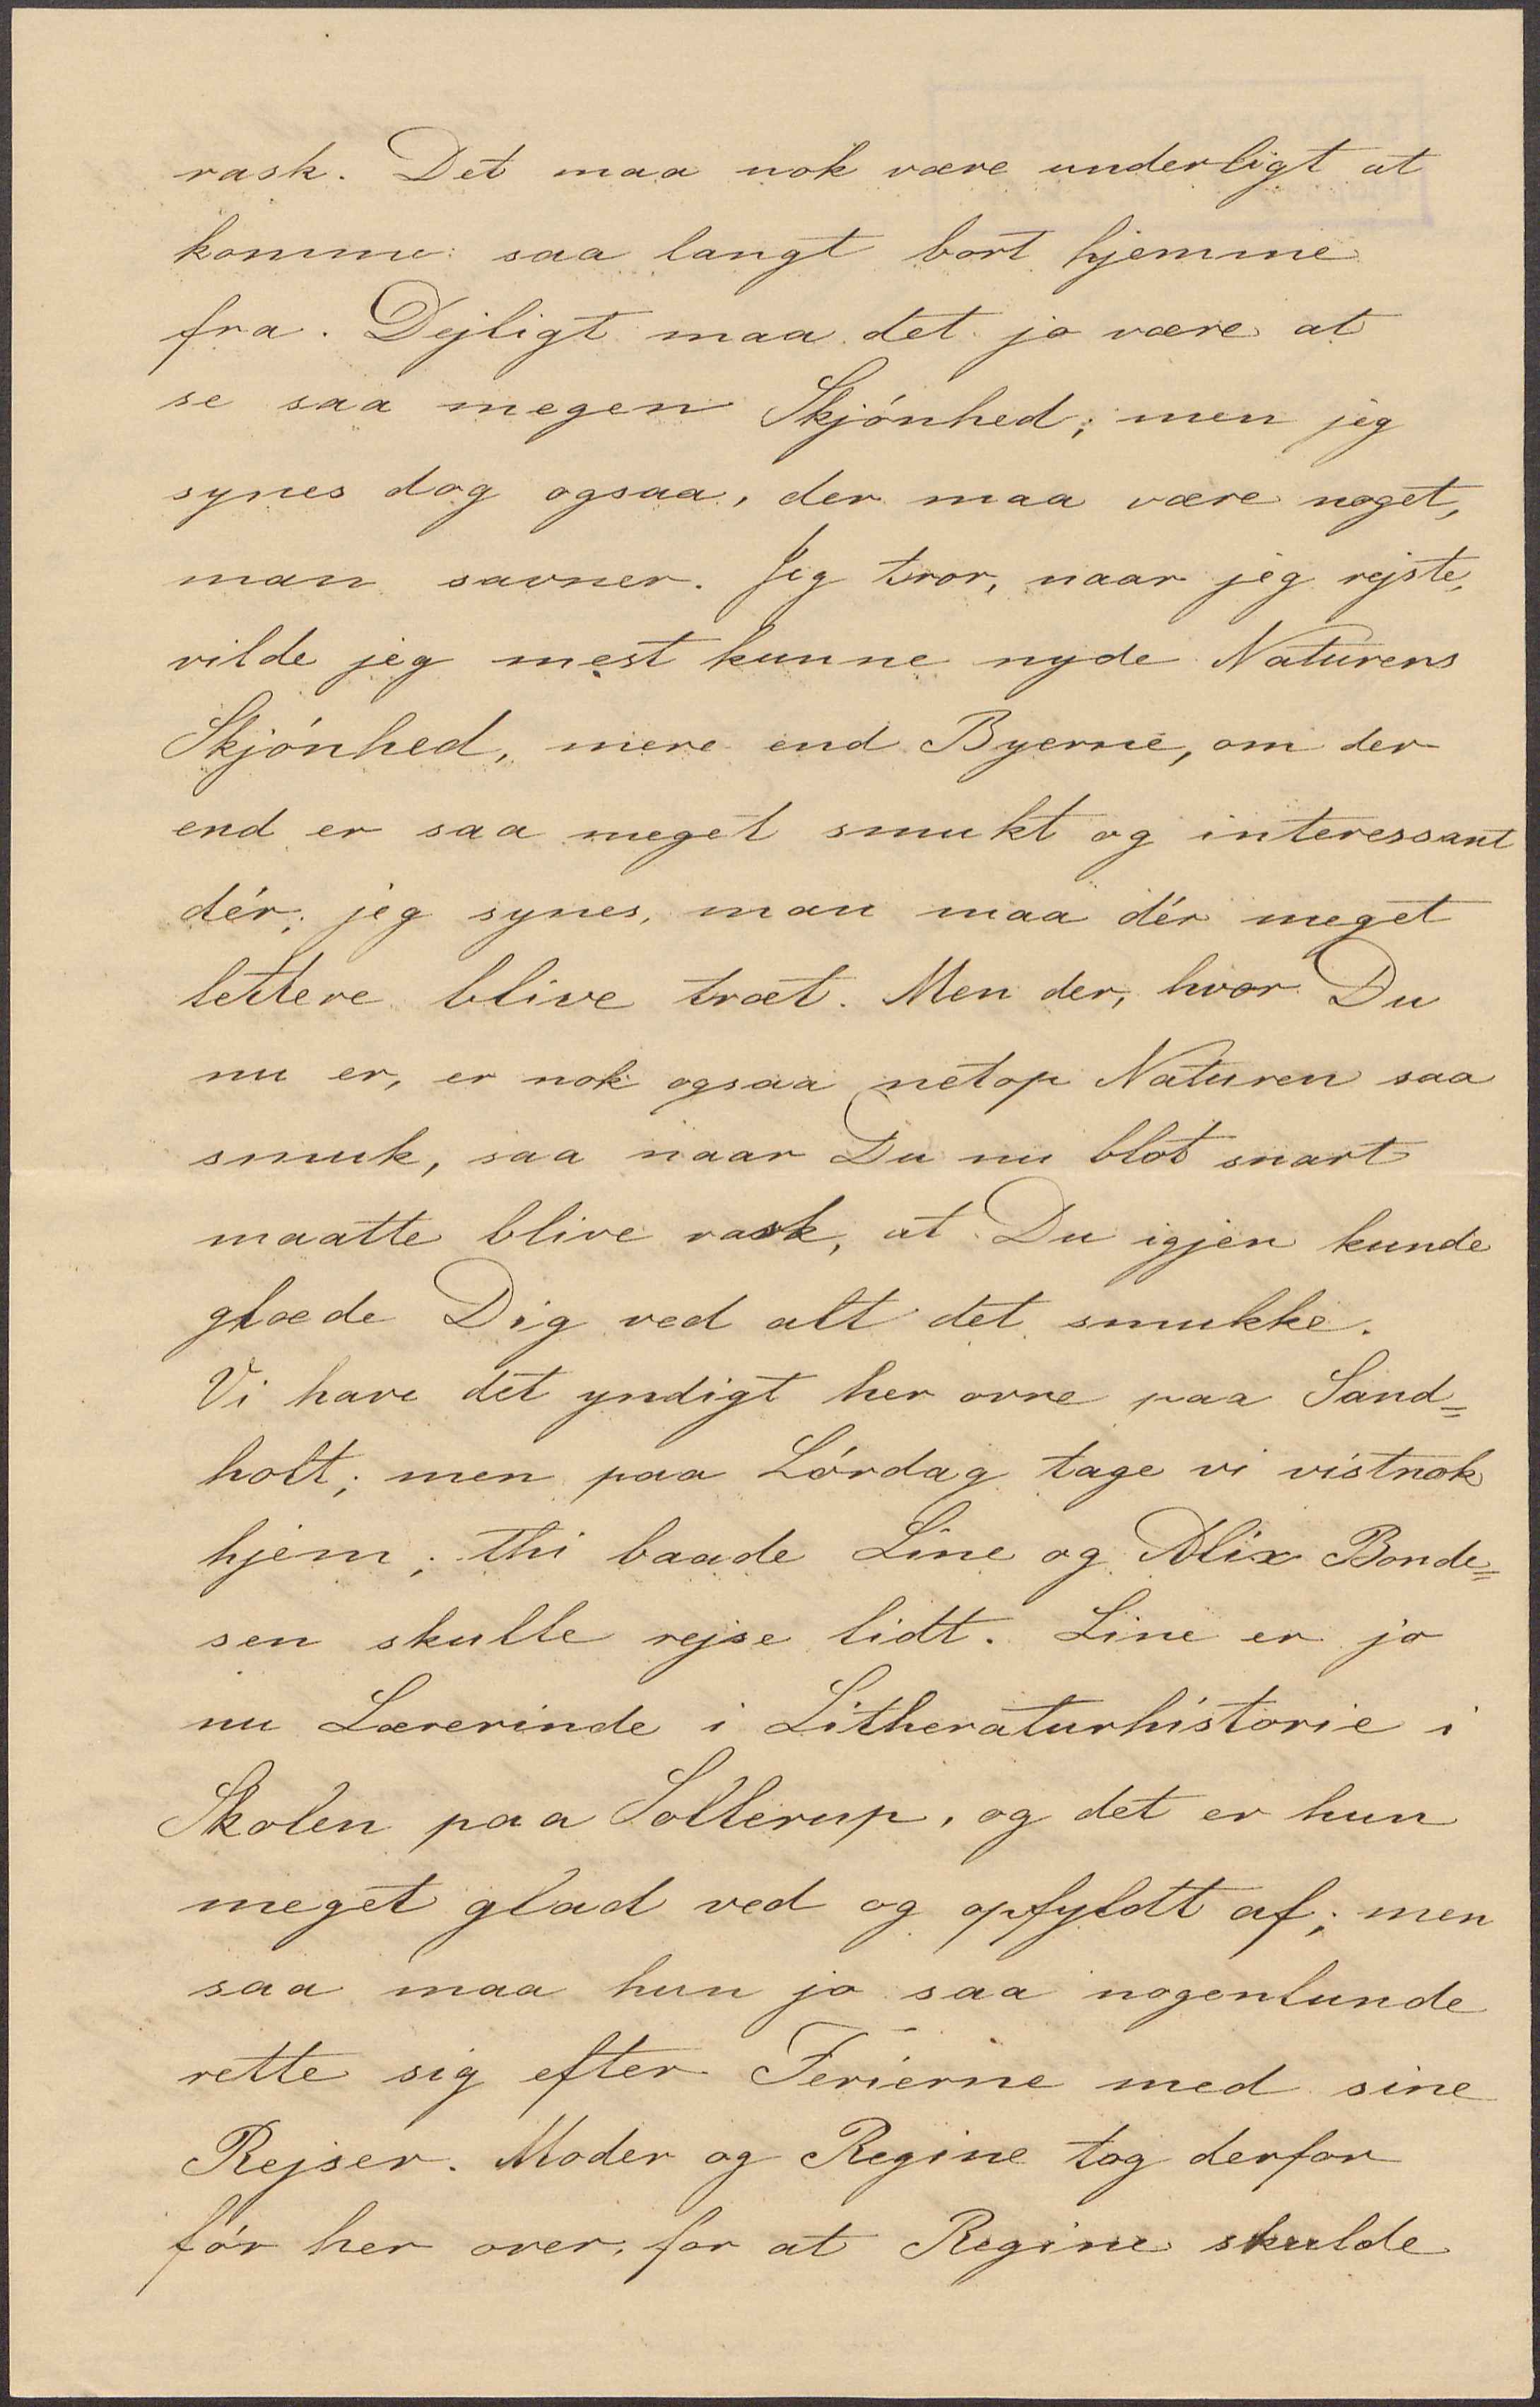 rask. Det maa nok være underligt at
komme saa langt bort hjemme
fra. Dejligt maa det jo være at
se saa megen Skjónhed; men jeg
synes dog ogsaa, der maa være noget,
man savner. Jeg tror, naar jeg rejste,
vilde jeg mest kunne nyde Naturens
Skjónhed, mere end Byerne, om der
end er saa meget smukt og interessant
dér; jeg synes, man maa dér meget
lettere blive træt. Men der, hvor Du
nu er, er nok ogsaa netop Naturen saa
smuk, saa naar Du nu blot snart
maatte blive rask, at Du igjen kunde
glæde Dig ved alt det smukke.
Vi have det yndigt her ovre paa Sand=
holt; men paa Lórdag tage vi vistnok
hjem; thi baade Line og Alix Bonde=
sen skulle rejse lidt. Line er jo
nu Lærerinde i Litheraturhistorie i
Skolen paa Sollerup, og det er hun
meget glad ved og opfyldt af; men
saa maa hun jo saa nogenlunde
rette sig efter Ferierne med sine
Rejser. Moder og Regine tog derfor
fór her over, for at Regine skulde